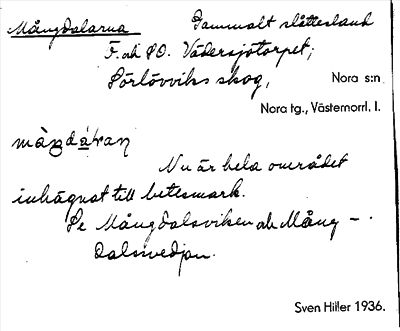 Mångdalarna Gammalt slåttesland
F. ak SO. Vädersjötorpet,
Sörlövviks skog, Nora s:n
Nora tg., Västernorrl. l.
Nu är hela området
inhägnat till betesmark.
Se Mångdalsviken ak Mång-
dalsvedjan.
Sven Hiller 1936.